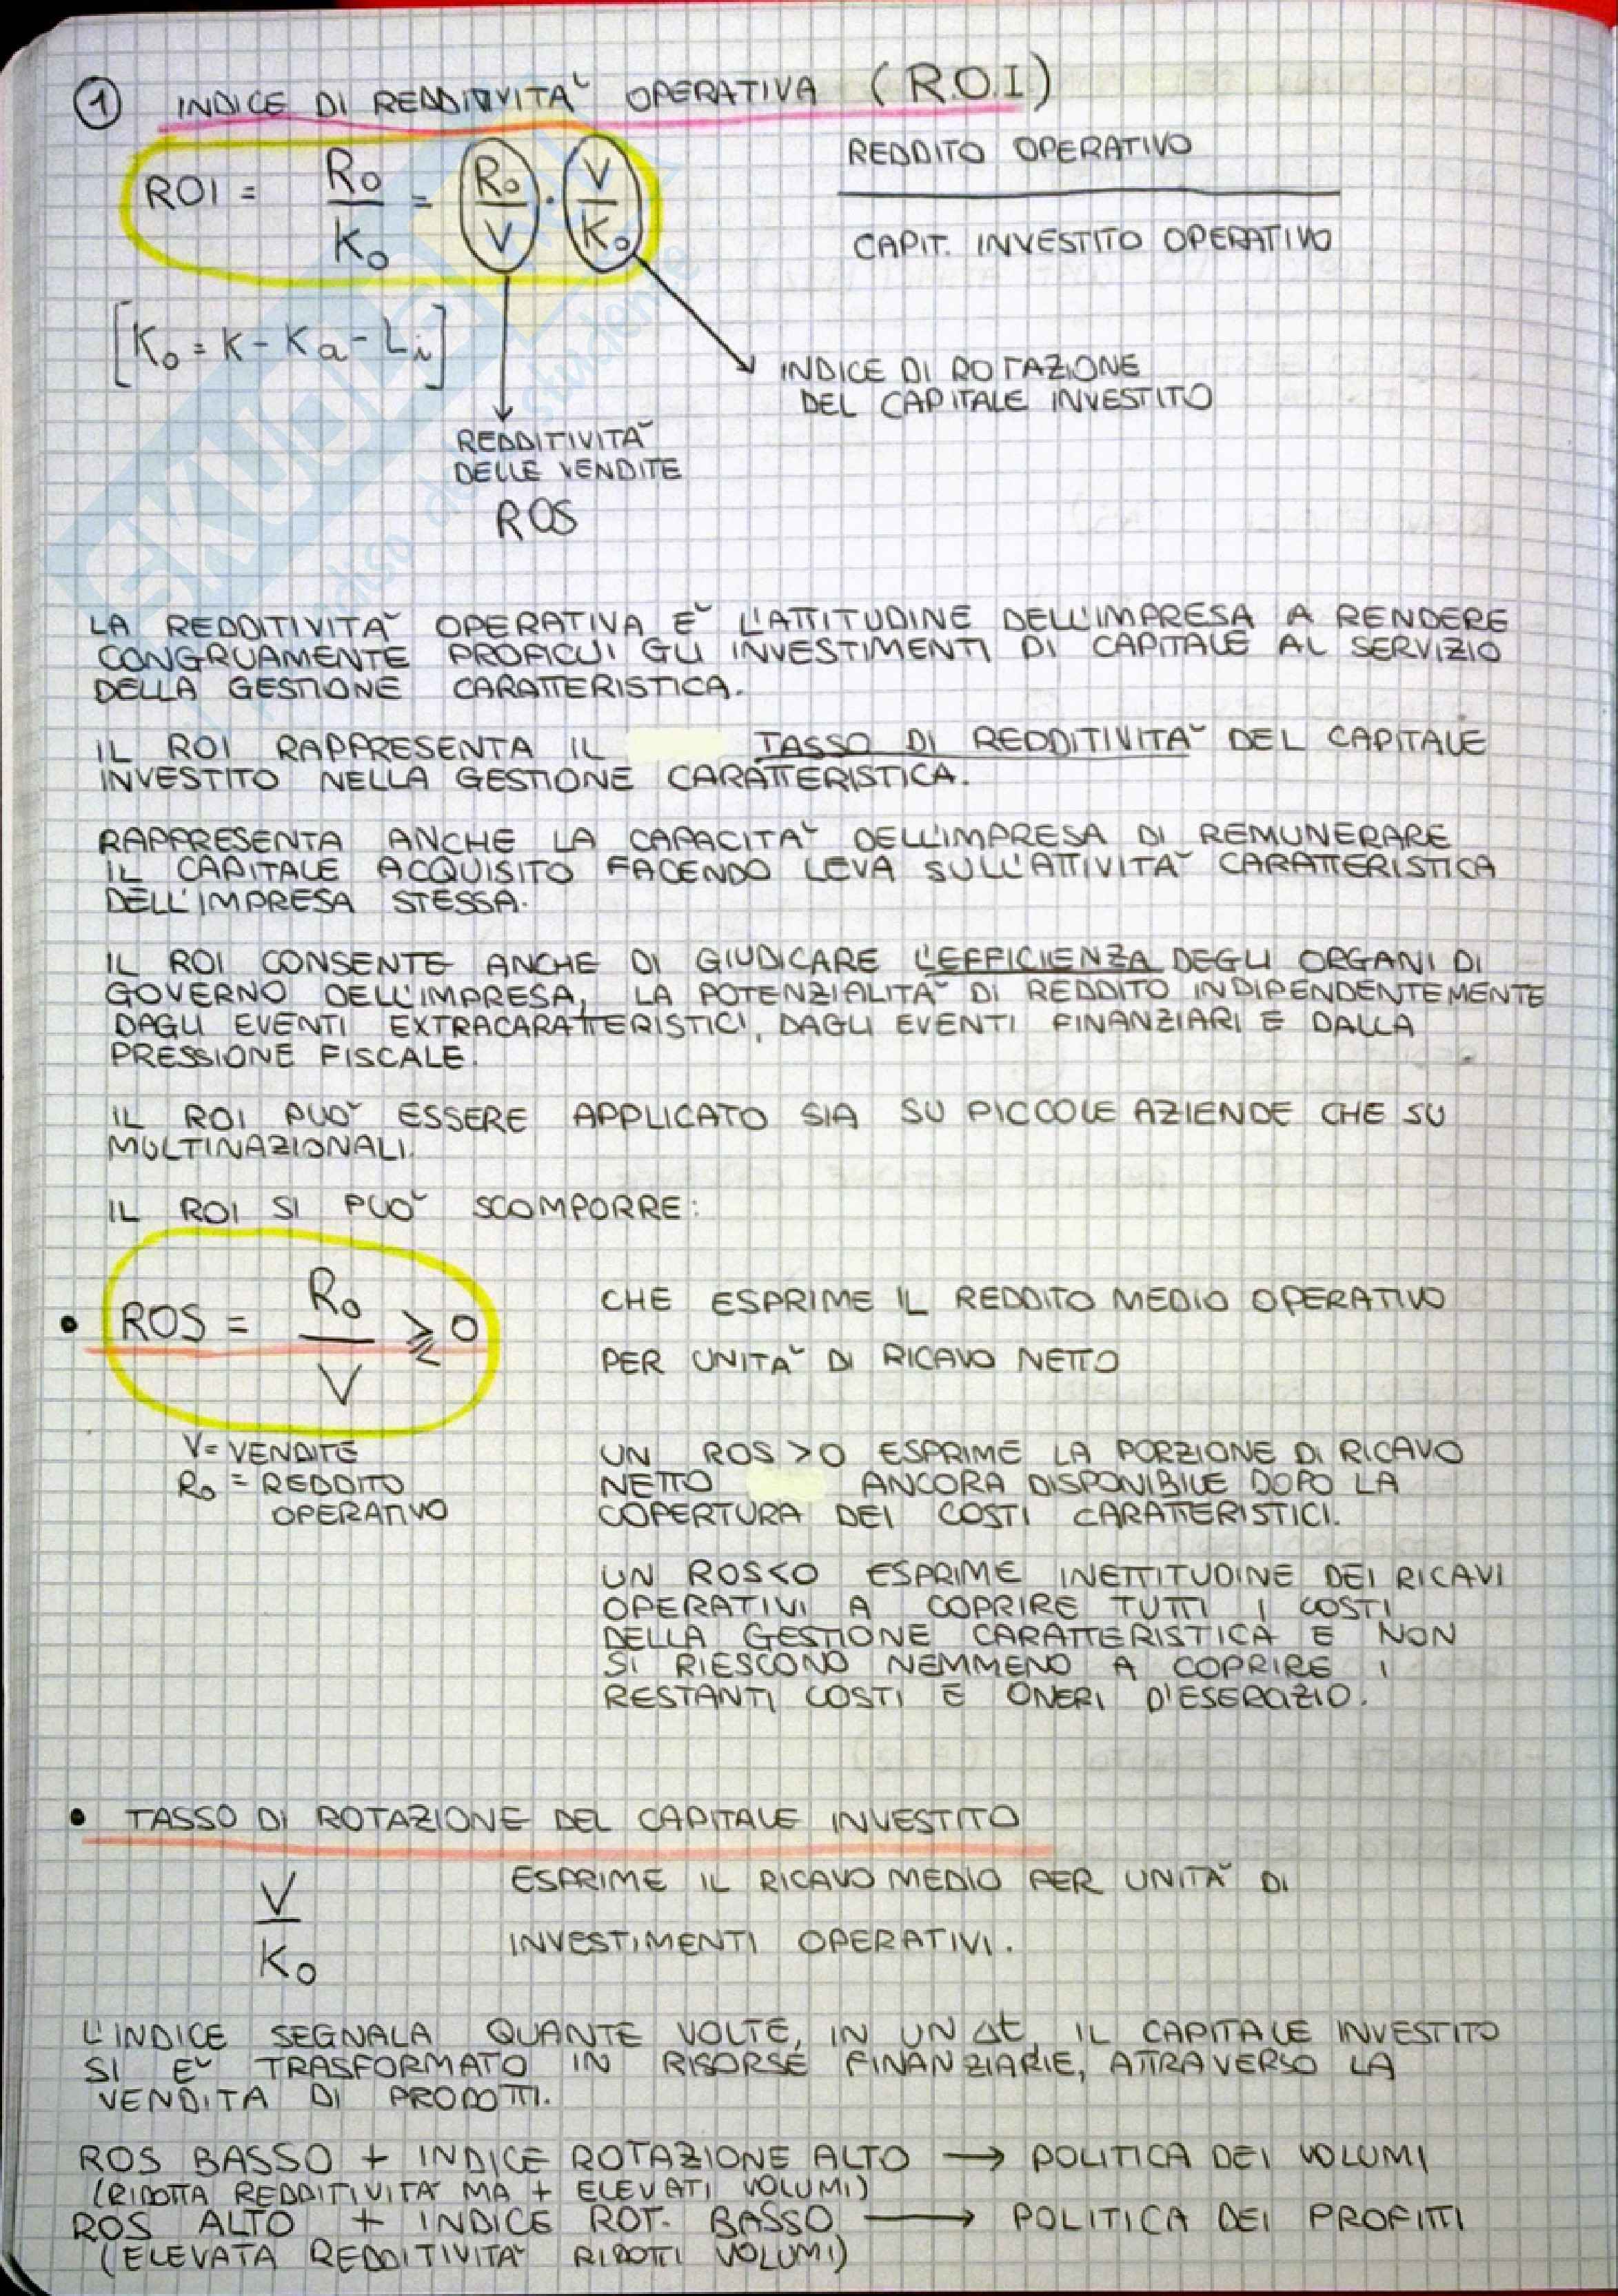 1 INDICE DI REDDITIVITA' OPERATIVA (R.O.I)
ROI = Ro/Ko = Ro/V · V/Ko
REDDITO OPERATIVO
CAPIT. INVESTITO OPERATIVO
[Ko = K - Ka - Li]
INDICE DI ROTAZIONE
DEL CAPITALE INVESTITO
REDDITIVITA'
DELLE VENDITE
ROS
LA REDDITIVITA' OPERATIVA E' L'ATTITUDINE DELL'IMPRESA A RENDERE
CONGRUAMENTE PROFICUI GLI INVESTIMENTI DI CAPITALE AL SERVIZIO
DELLA GESTIONE CARATTERISTICA.
IL ROI RAPPRESENTA IL TASSO DI REDDITIVITA' DEL CAPITALE
INVESTITO NELLA GESTIONE CARATTERISTICA.
RAPPRESENTA ANCHE LA CAPACITA' DELL'IMPRESA DI REMUNERARE
IL CAPITALE ACQUISITO FACENDO LEVA SULL'ATTIVITA' CARATTERISTICA
DELL'IMPRESA STESSA.
IL ROI CONSENTE ANCHE DI GIUDICARE L'EFFICIENZA DEGLI ORGANI DI
GOVERNO DELL'IMPRESA, LA POTENZIALITA' DI REDDITO INDIPENDENTEMENTE
DAGLI EVENTI EXTRACARATTERISTICI, DAGLI EVENTI FINANZIARI E DALLA
PRESSIONE FISCALE.
IL ROI PUO' ESSERE APPLICATO SIA SU PICCOLE AZIENDE CHE SU
MULTINAZIONALI.
IL ROI SI PUO' SCOMPORRE:
• ROS = Ro/V ⪌ 0
CHE ESPRIME IL REDDITO MEDIO OPERATIVO
PER UNITA' DI RICAVO NETTO
V = VENDITE
Ro = REDDITO
OPERATIVO
UN ROS > 0 ESPRIME LA PORZIONE DI RICAVO
NETTO ANCORA DISPONIBILE DOPO LA
COPERTURA DEI COSTI CARATTERISTICI.
UN ROS<0 ESPRIME INETTITUDINE DEI RICAVI
OPERATIVI A COPRIRE TUTTI I COSTI
DELLA GESTIONE CARATTERISTICA E NON
SI RIESCONO NEMMENO A COPRIRE I
RESTANTI COSTI E ONERI D'ESERCIZIO.
• TASSO DI ROTAZIONE DEL CAPITALE INVESTITO
V/Ko
ESPRIME IL RICAVO MEDIO PER UNITA' DI
INVESTIMENTI OPERATIVI.
L'INDICE SEGNALA QUANTE VOLTE, IN UN Δt, IL CAPITALE INVESTITO
SI E' TRASFORMATO IN RISORSE FINANZIARIE, ATTRAVERSO LA
VENDITA DI PRODOTTI.
ROS BASSO + INDICE ROTAZIONE ALTO → POLITICA DEI VOLUMI
(RIDOTTA REDDITIVITA' MA + ELEVATI VOLUMI)
ROS ALTO + INDICE ROT. BASSO → POLITICA DEI PROFITTI
(ELEVATA REDDITIVITA' RIDOTTI VOLUMI)